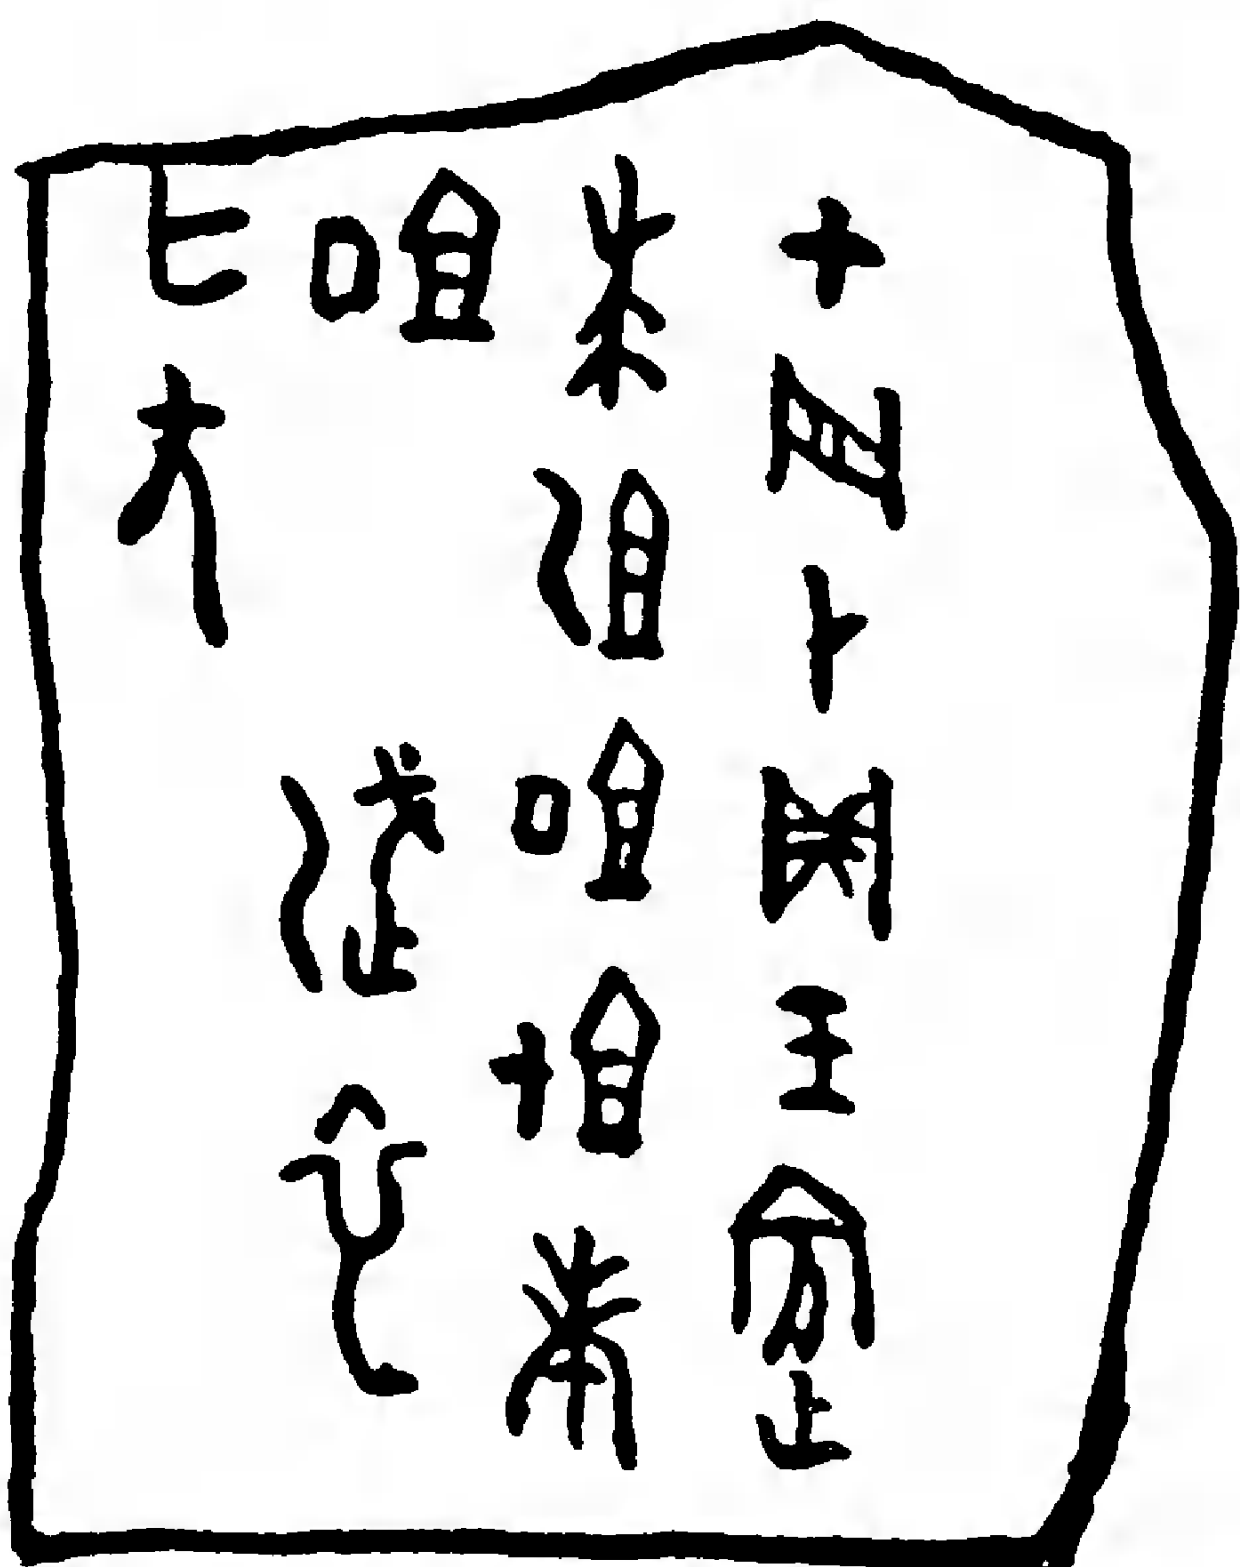 甲辰卜貞王賓
求祖乙祖丁祖甲康
祖丁武乙衣
亡尤